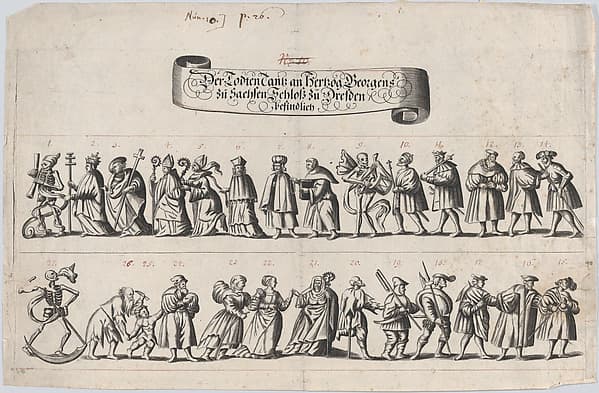 Num. 10. p. 26.
Der Todten Tantz an Hertzog Georgens
zu Sachsen Schloß zu Dresden
befindlich.
1. 2. 3. 4. 5. 6. 7. 8. 9. 10. 11. 12. 13. 14.
27. 26. 25. 24. 23. 22. 21. 20. 19. 18. 17. 16. 15.